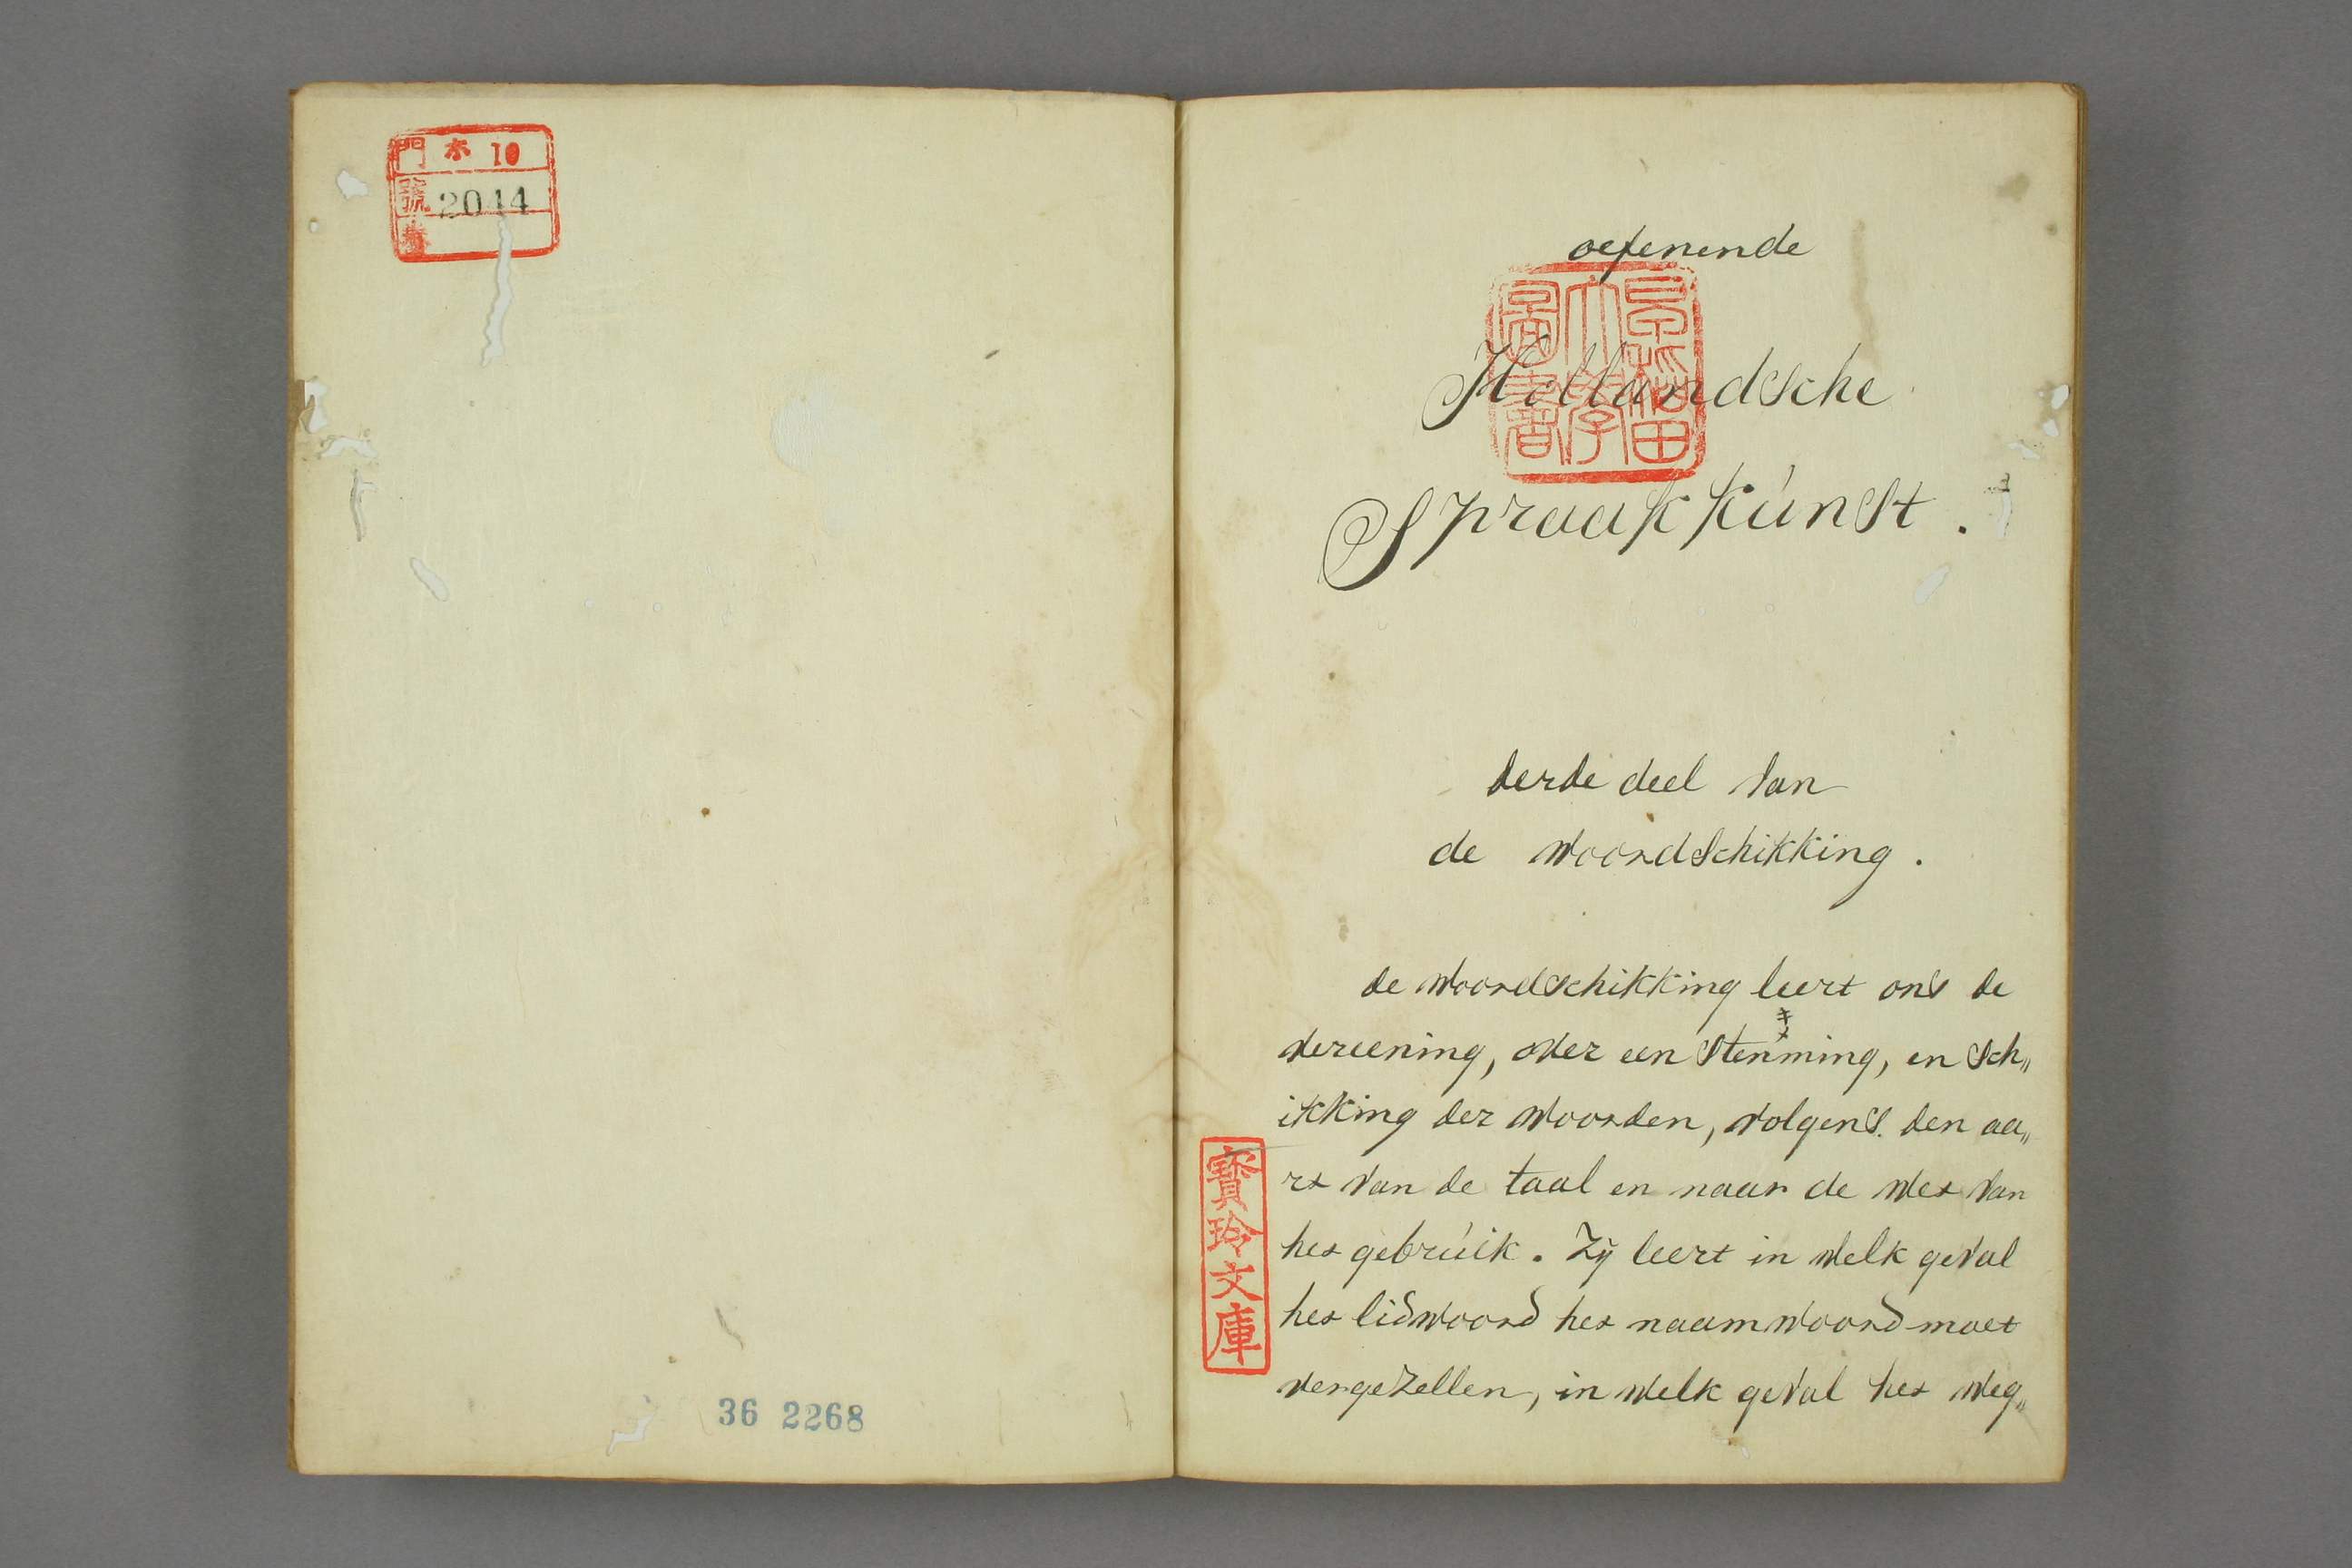 門 ホ 10
號 2044
巻
36 2268
oefenende
Hollandsche
Spraakkúnst.
早稲田大学図書
derde deel van
de woordschikking.
de woordschikking leert ons de
vereening, over een stemming, en sch„
ikking der woorden, volgens. den aa„
rt van de taal en naar de wet van
het gebrúik. Zij leert in welk geval
het lidwoord het naamwoord moet
vergezellen, in welk geval het weg„
寳玲文庫